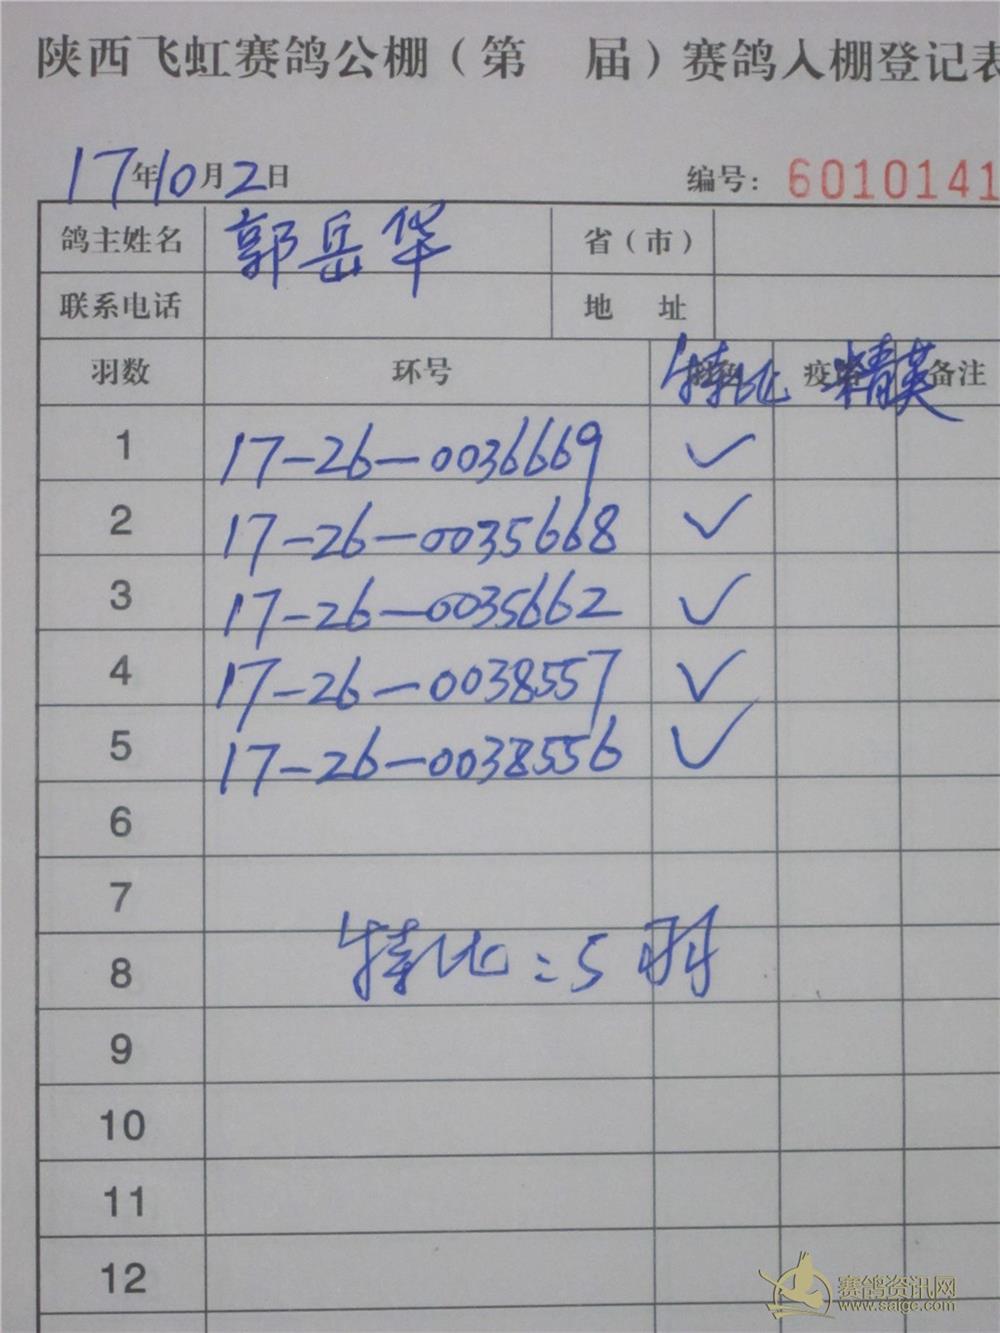 陕西飞虹赛鸽公棚（第 届）赛鸽入棚登记表
17年10月2日 编号：6010141
鸽主姓名 郭岳华 省（市）
联系电话 地 址
羽数 环号 特比 疫 精英 备注
1 17-26-0036669 ✓
2 17-26-0035668 ✓
3 17-26-0035662 ✓
4 17-26-0038557 ✓
5 17-26-0038556 ✓
6
7
8 特比:5羽
9
10
11
12
赛鸽资讯网
www.saigc.com